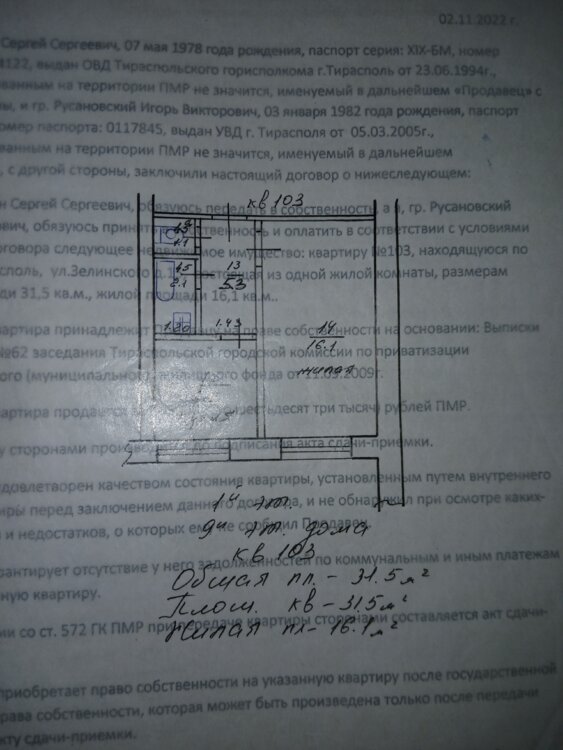 02.11.2022 г.
Сергей Сергеевич, 07 мая 1978 года рождения, паспорт серия: XIX-БМ, номер
4122, выдан ОВД Тираспольского горисполкома г.Тирасполь от 23.06.1994г.,
ванным на территории ПМР не значится, именуемый в дальнейшем «Продавец» с
ы, и гр. Русановский Игорь Викторович, 03 января 1982 года рождения, паспорт
омер паспорта: 0117845, выдан УВД г. Тирасполя от 05.03.2005г.,
ванным на территории ПМР не значится, именуемый в дальнейшем
, с другой стороны, заключили настоящий договор о нижеследующем:
кв 103
н Сергей Сергеевич, обязуюсь передать в собственность, а я, гр. Русановский
ович, обязуюсь принять собственность и оплатить в соответствии с условиями
оговора следующее недвижимое имущество: квартиру №103, находящуюся по
споль, ул.Зелинского д.1 из одной жилой комнаты, размерам
ди 31,5 кв.м., жилой площади 16,1 кв.м..
1.1
45
2.1
13
5.3
1.20
1.43
14
16.1
жилая
квартира принадлежит на праве собственности на основании: Выписки
№62 заседания Тираспольской городской комиссии по приватизации
ого (муниципального) жилищного фонда от 2009г.
квартира продается шестьдесят три тысяч) рублей ПМР.
у сторонами произведен до подписания акта сдачи-приемки.
довлетворен качеством состояния квартиры, установленным путем внутреннего
иры перед заключением данного договора, и не обнаружил при осмотре каких-
и недостатков, о которых ему не сообщил Продавец.
1й эт.
9й эт. дома
кв 103
арантирует отсутствие у него задолженностей по коммунальным и иным платежам
ную квартиру.
Общая пл. - 31.5 м²
Площ. кв - 31.5 м²
Жилая пл - 16.1 м²
ии со ст. 572 ГК ПМР при передаче квартиры сторонами составляется акт сдачи-
приобретает право собственности на указанную квартиру после государственной
рава собственности, которая может быть произведена только после передачи
кту сдачи-приемки.